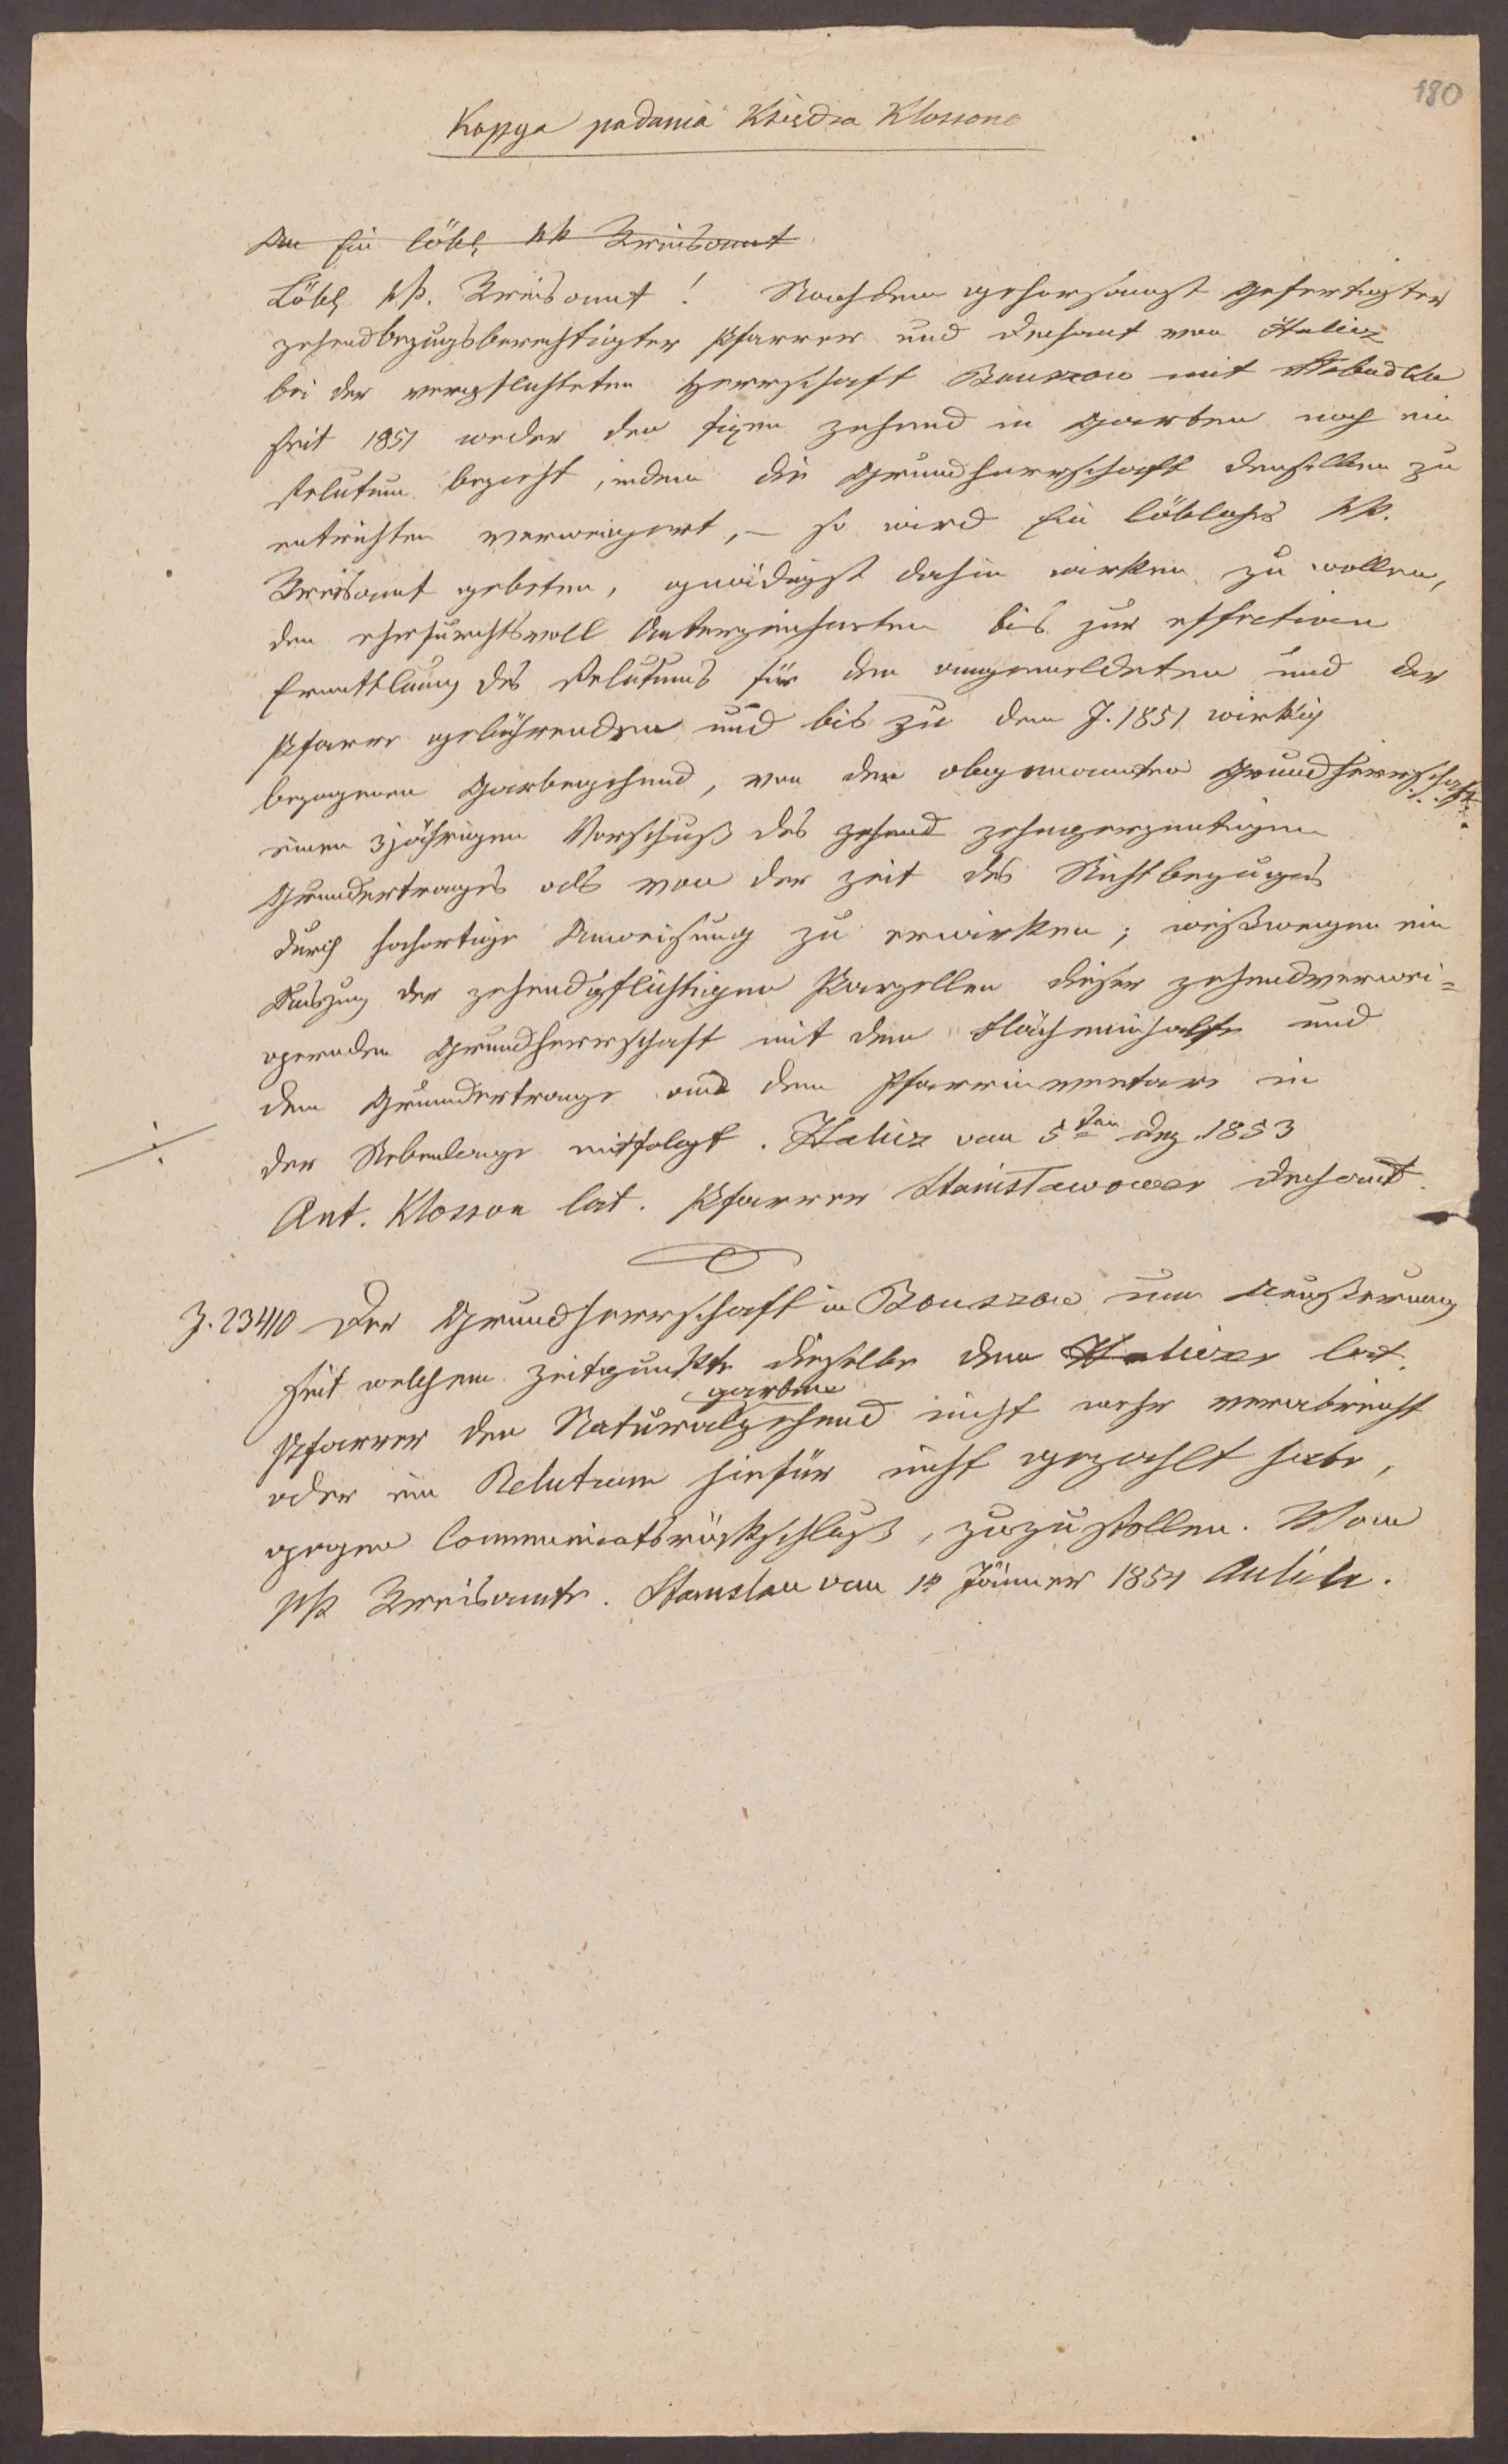 180
Kopya podania Księdza Klossona
An Ein löbl kk Kreisamt
Löbl kk. Kreisamt! Nachdem gehorsamst gefertigter
zehendbezugsberechtigter Pfarrer und Dechant von Halicz
bei der verpflichteten Herrschaft Bouszow mit Słobudka
seit 1851 weder den fixen Zehend in Garben noch ein
Relutum bezieht, indem die Grundherrschaft denselben zu
entrichten verweigert, – so wird Ein löbliches kk.
Kreisamt gebeten, gnädigst dahin wirken zu wollen,
den ehrfurchtsvoll Unterzeichneten bis zur effectiven
Ermittlung des Relutums für den angemeldeten und der
Pfarre gebührenden und bis zu dem J. 1851 wirklich
bezogenen Garbezehend, von der obgenannten Grundherrschaft
einen 3jährigen Vorschuß des zehend zehnperzentigen
Grundertrages als von der Zeit des Nichtbezuges
durch hochortige Anweisung zu erwirken; weßwegen ein
Auszug der zehendpflichtigen Parzellen dieser zehendverwei=
gernden Grundherrschaft mit dem Flächeninhalte und
dem Grundertrage aus dem Pfarrinventare in
der Nebenlage mitfolgt. Halicz vom 5ten Dez. 1853
Ant. Klosson lat. Pfarrer Stanisławower Dechant.
Z. 23410 Der Grundherrschaft in Bouszow um Aeußerung
seit welchem Zeitpunkte dieselbe dem Haliczer lat.
garben
Pfarrer den Naturalzehend nicht mehr verabreicht
oder ein Relutum hiefür nicht gezahlt habe,
gegen Communicatsrückschluß, zuzustellen. Vom
kk Kreisamte. Stanislau vom 14 Jänner 1854